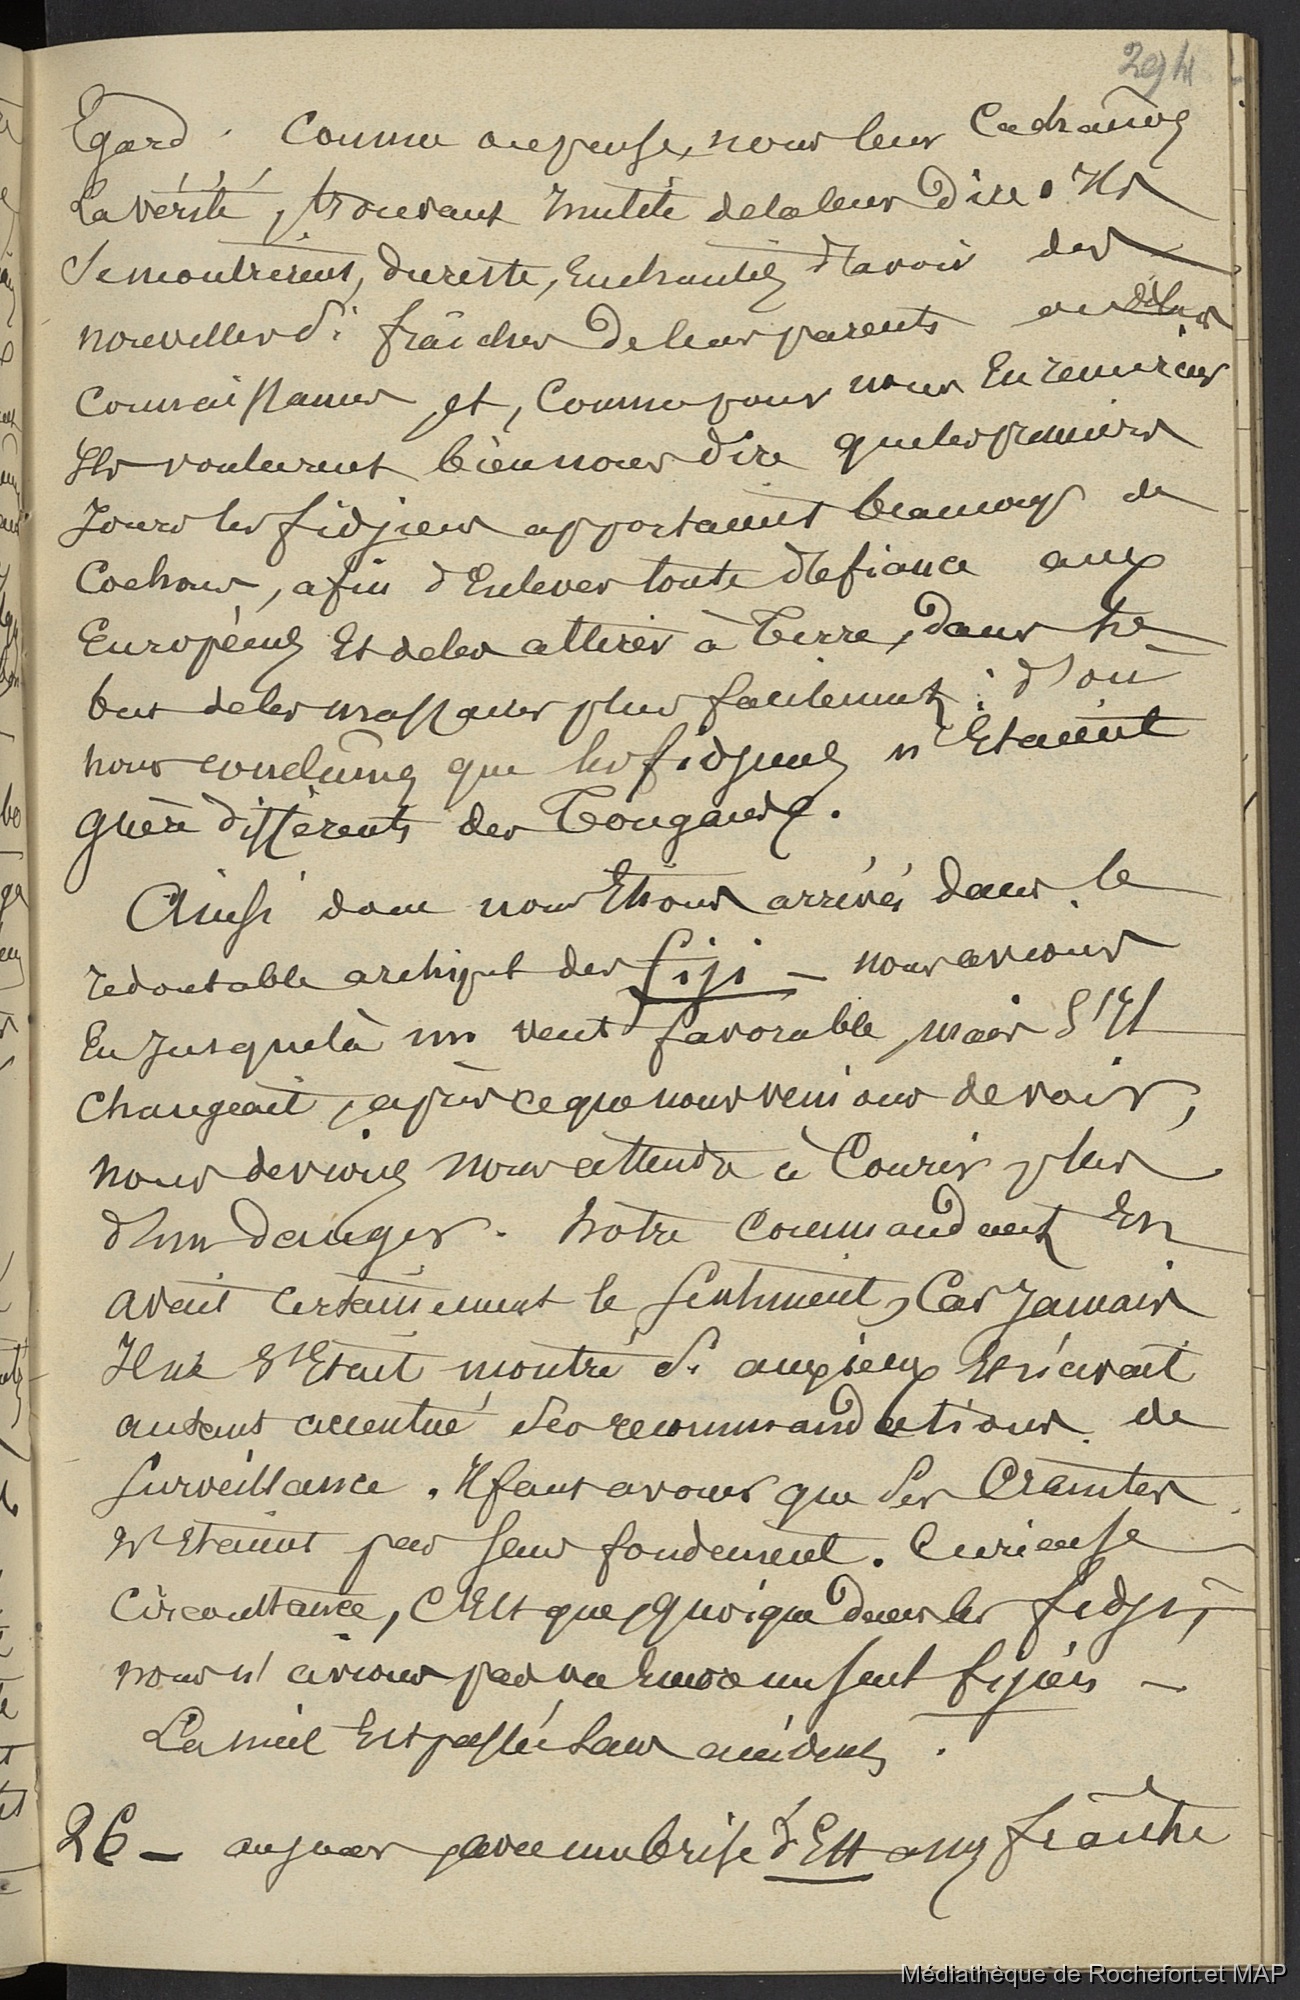 294
Egard. Comme on pense, nous leur cachâmes
la vérité, trouvant Inutile de la leur dire. Ils
Se montrèrent, du reste, Enchantés d'avoir des
nouvelles Si fraîches de leurs parents ou
connaissances et, Comme pour nous En remercier
Ils voulurent bien nous dire que les premiers
Jours les fidjiens apportaient beaucoup de
Cochons, afin d'Enlever toute défiance aux
Européens Et de les attirer à Terre, dans le
but de les massacrer plus facilement : d'où
nous conclûmes que les fidjiens n'Etaient
guère différents des Tongans.
Ainsi donc nous Etions arrivés dans le
redoutable archipel des fiji — nous avions
Eu Jusque là un vent favorable, mais S'Il
changeait, après ce que nous venions de voir,
nous devions nous attendre à Courir plus
d'un danger. Notre Commandant En
avait certainement le Sentiment, Car Jamais
Il ne S'Etait montré Si anxieux Et n'avait
autant accentué Ses recommandations de
Surveillance. Il faut avouer que Ses Craintes
n'Etaient pas sans fondement. Curieuse
Circonstance, C'Est que, quoique dans les fidji,
nous n'avions pas vu Encore un seul fijien —
La nuit Est passée Sans accidents.
26 — au jour, avec une brise d'Est assez fraîche
Médiathèque de Rochefort et MAP